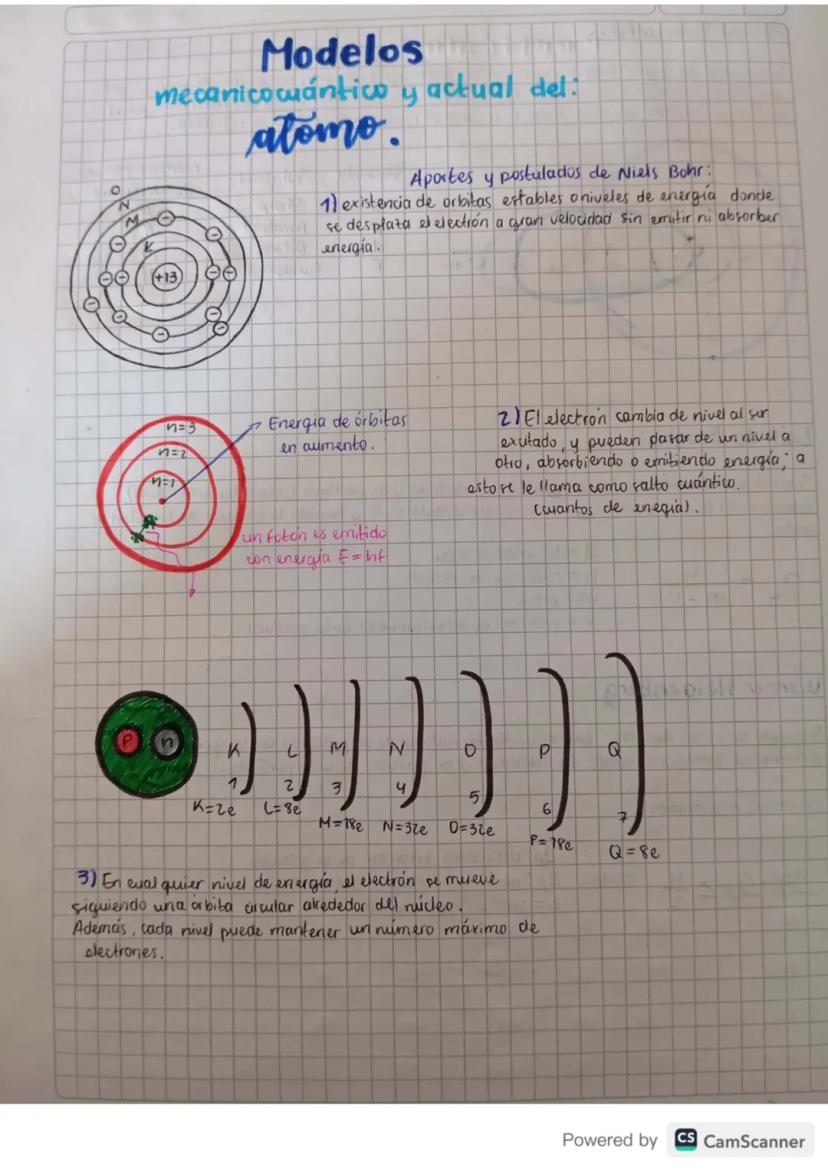 Modelos
mecanicocuántico y actual del:
atómo.
Aportes y postulados de Niels Bohr:
1) existencia de órbitas estables o niveles de energía donde
se desplaza el electrón a gran velocidad sin emitir ni absorber
energía.
O
N
M
K
+13
n=3
n=2
n=1
Energia de órbitas
en aumento.
un fotón es emitido
con energía E = hf
2) El electrón cambia de nivel al ser
exitado, y pueden pasar de un nivel a
otro, absorbiendo o emitiendo energía; a
esto se le llama como salto cuántico.
(cuantos de enegía).
P n K L M N O P Q
1 2 3 4 5 6 7
K=2e L=8e M=18e N=32e O=32e P=18e Q=8e
3) En cualquier nivel de energía, el electrón se mueve
siguiendo una órbita circular alrededor del núcleo.
Además, cada nivel puede mantener un número máximo de
electrones.
Powered by CS CamScanner